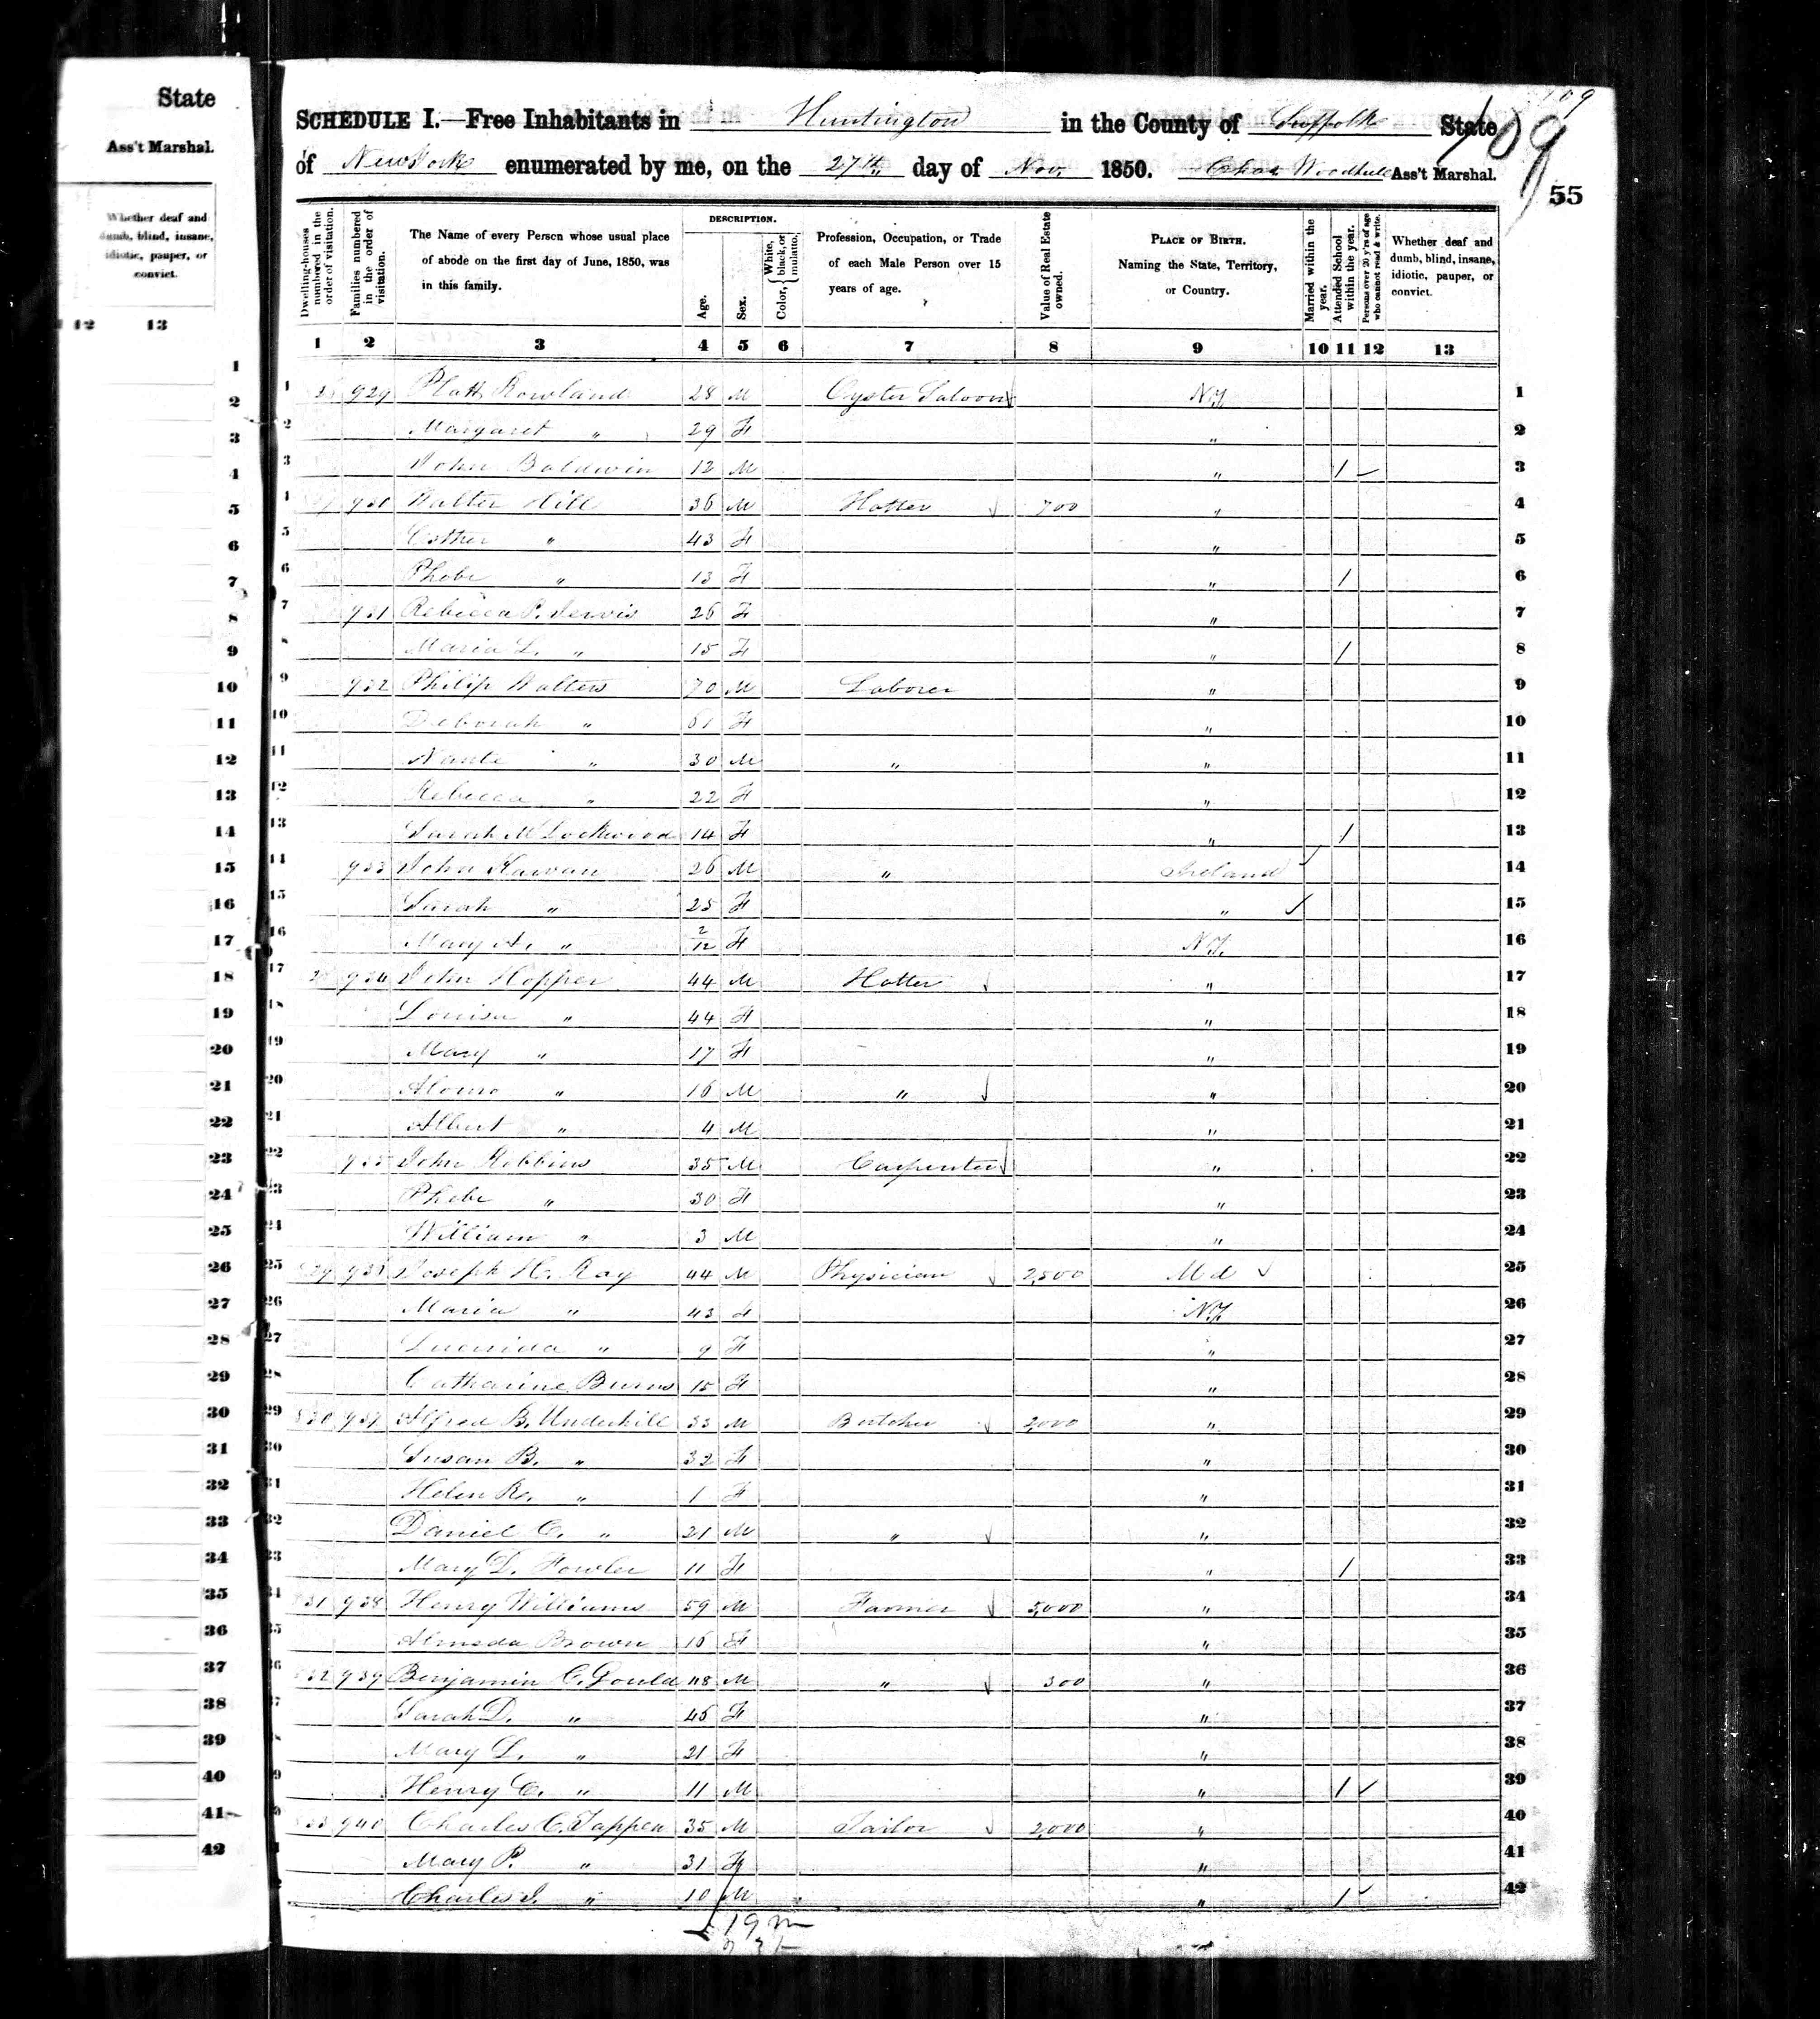 State
Ass't Marshal.
Whether deaf and
dumb, blind, insane,
idiotic, pauper, or
convict.
12 13
109
SCHEDULE I.—Free Inhabitants in Huntington in the County of Suffolk State
of New York enumerated by me, on the 27th day of Nov. 1850. Woodhull Ass't Marshal.
109
55
Dwelling-houses numbered in the order of visitation.
Families numbered in the order of visitation.
The Name of every Person whose usual place of abode on the first day of June, 1850, was in this family.
DESCRIPTION.
Age.
Sex.
Color, { White, black, or mulatto.
Profession, Occupation, or Trade of each Male Person over 15 years of age.
Value of Real Estate owned.
PLACE OF BIRTH. Naming the State, Territory, or Country.
Married within the year.
Attended School within the year.
Persons over 20 y'rs of age who cannot read & write.
Whether deaf and dumb, blind, insane, idiotic, pauper, or convict.
1 2 3 4 5 6 7 8 9 10 11 12 13
1 929 Platt Rowland 28 M Oyster Saloon N.Y. 1
2 Margaret " 29 F " 2
3 John Baldwin 12 M " / 3
4 930 Walter Hill 36 M Hatter 700 " 4
5 Esther " 43 F " 5
6 Phebe " 13 F " / 6
7 931 Rebecca P. Jervis 26 F " 7
8 Maria L. " 15 F " / 8
9 932 Philip Walters 70 M Laborer " 9
10 Deborah " 61 F " 10
11 " 30 M " " 11
12 Rebecca " 22 F " 12
13 Sarah M Lockwood 14 F " / 13
14 933 John 26 M " Ireland 14
15 Sarah " 25 F " 15
16 Mary A. " 2/12 F N.Y. 16
17 934 John Hopper 44 M Hatter " 17
18 Louisa " 44 F " 18
19 Mary " 17 F " 19
20 Alonzo " 16 M " " 20
21 Albert " 4 M " 21
22 935 John Robbins 35 M Carpenter " 22
23 Phebe " 30 F " 23
24 William " 3 M " 24
25 936 Joseph H. Ray 44 M Physician 2,500 Md 25
26 Maria " 43 F N.Y. 26
27 " 9 F " 27
28 Catharine Burns 15 F " 28
29 830 937 Alfred B. Underhill 33 M Butcher 2,000 " 29
30 Susan B. " 32 F " 30
31 Helen R. " 1 F " 31
32 Daniel C. " 21 M " " 32
33 Mary D. Fowler 11 F " / 33
34 31 938 Henry Williams 59 M Farmer 5,000 " 34
35 Almeda Brown 16 F " 35
36 32 939 Benjamin C. Gould 48 M " 300 " 36
37 Sarah D. " 46 F " 37
38 Mary L. " 21 F " 38
39 Henry C. " 11 M " / 39
40 33 940 Charles C. Tappen 35 M Tailor 2,000 " 40
41 Mary P. " 31 F " 41
42 Charles I. " 10 M " / 42
19 m